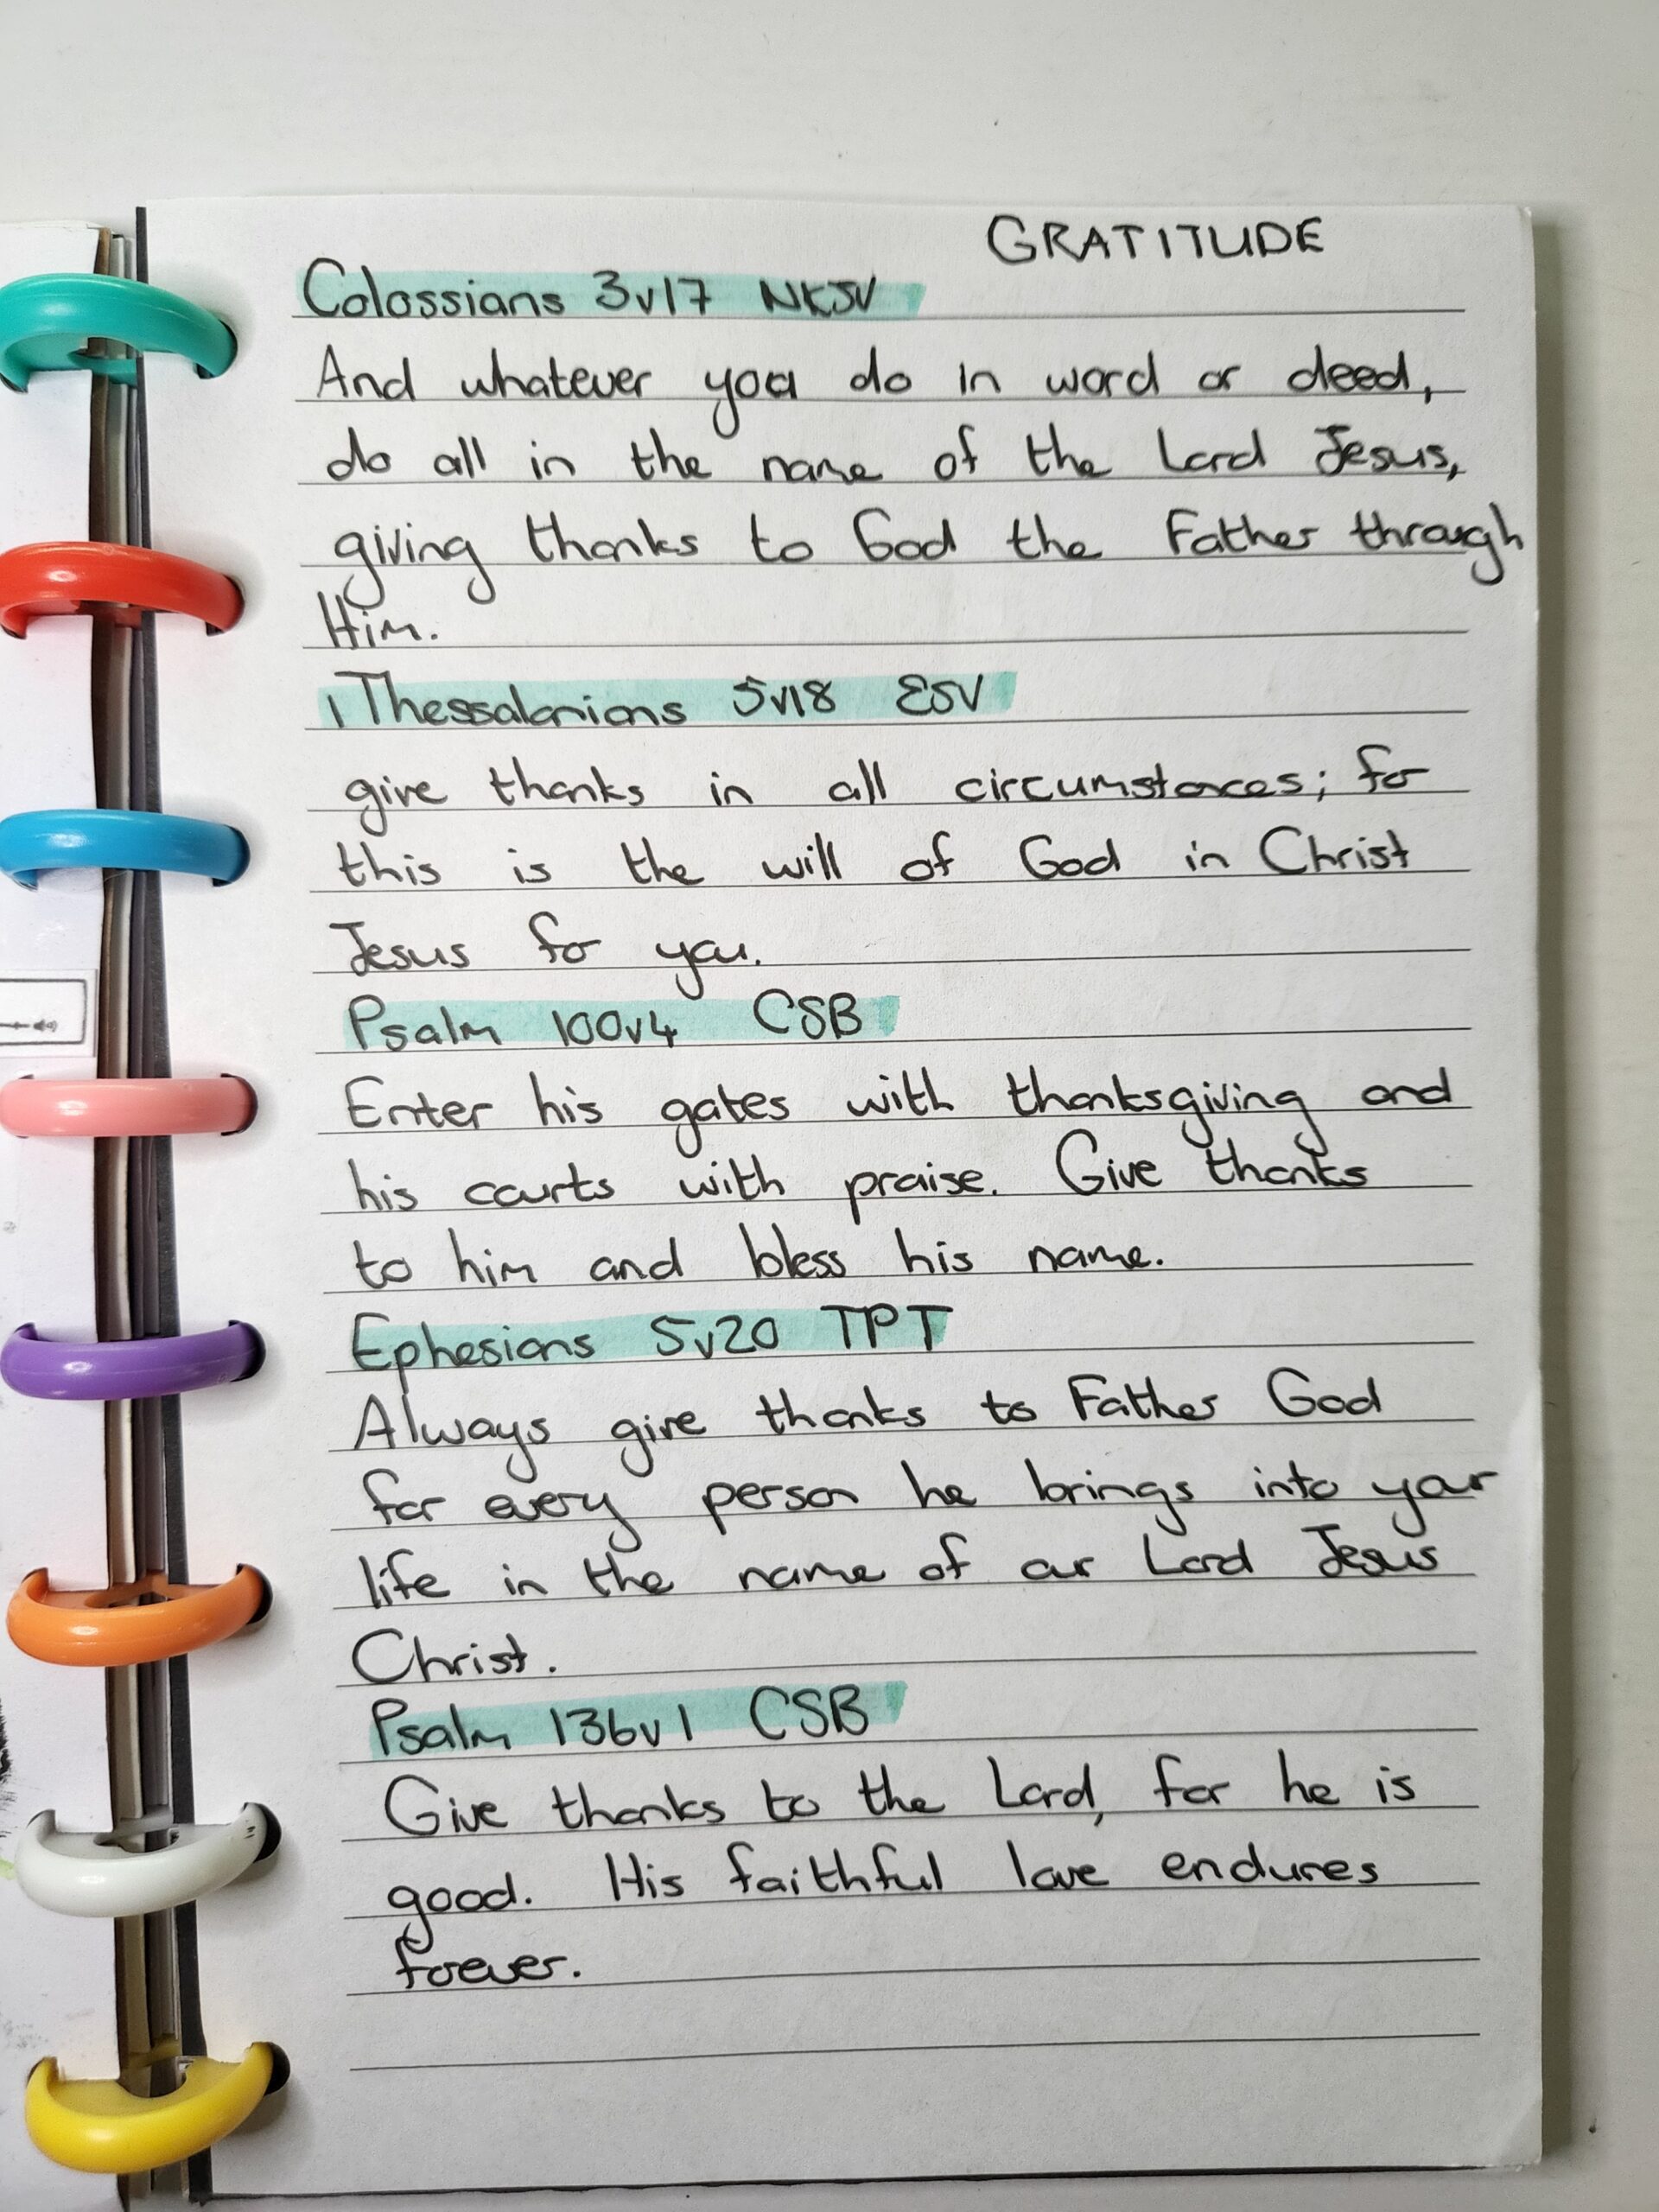 GRATITUDE
Colossians 3v17 NKJV
And whatever you do in word or deed,
do all in the name of the Lord Jesus,
giving thanks to God the Father through
Him.
1 Thessalonians 5v18 ESV
give thanks in all circumstances; for
this is the will of God in Christ
Jesus for you.
Psalm 100v4 CSB
Enter his gates with thanksgiving and
his courts with praise. Give thanks
to him and bless his name.
Ephesians 5v20 TPT
Always give thanks to Father God
for every person he brings into your
life in the name of our Lord Jesus
Christ.
Psalm 136v1 CSB
Give thanks to the Lord, for he is
good. His faithful love endures
forever.